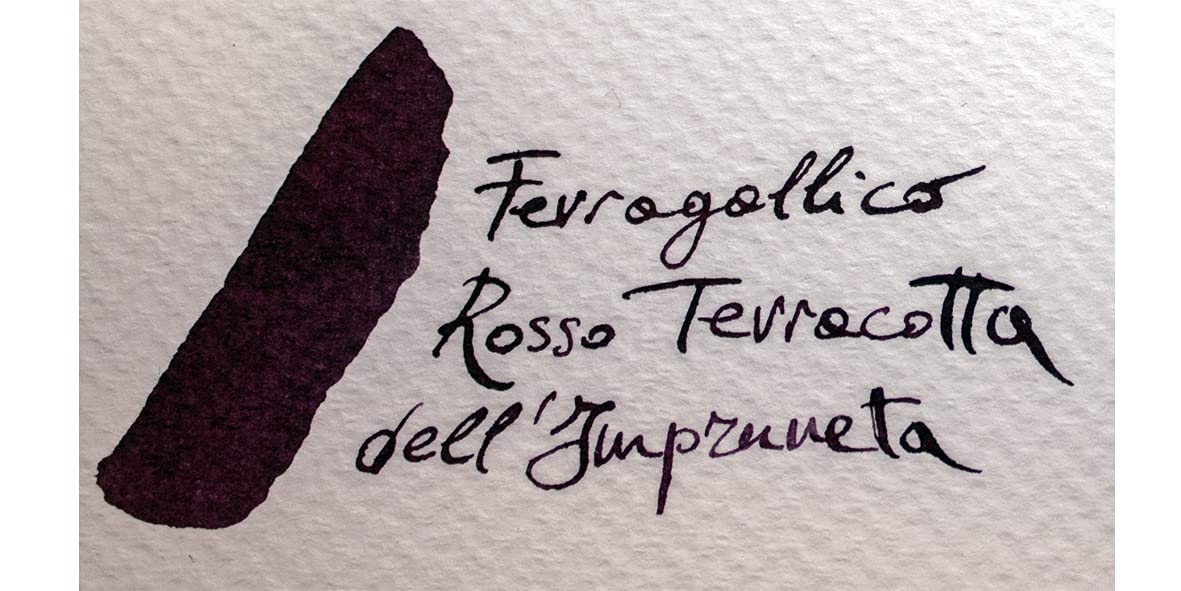 Ferrogallico
Rosso Terracotta
dell'Impruneta